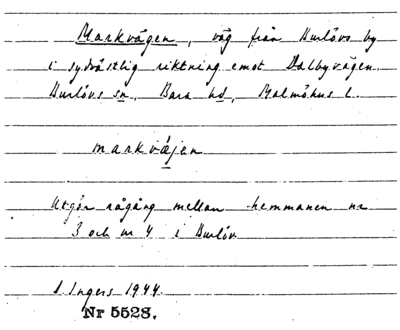 Markvägen, väg från Burlövs by
i sydvästlig riktning emot Dalbyvägen.
Burlövs sn, Bara hd, Malmöhus l.
markväjen
Utgör rågång mellan hemmanen nr
3 och nr 4 i Burlöv
I. Ingers 1944.
Nr 5528.